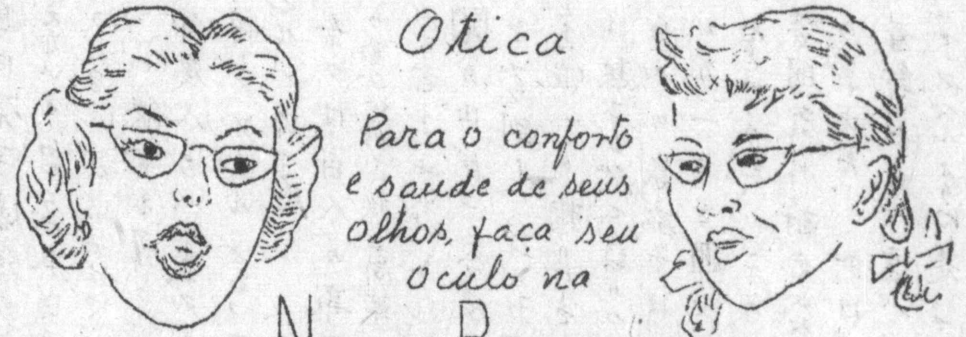 Otica
Para o conforto
e saude de seus
olhos, faça seu
oculo na